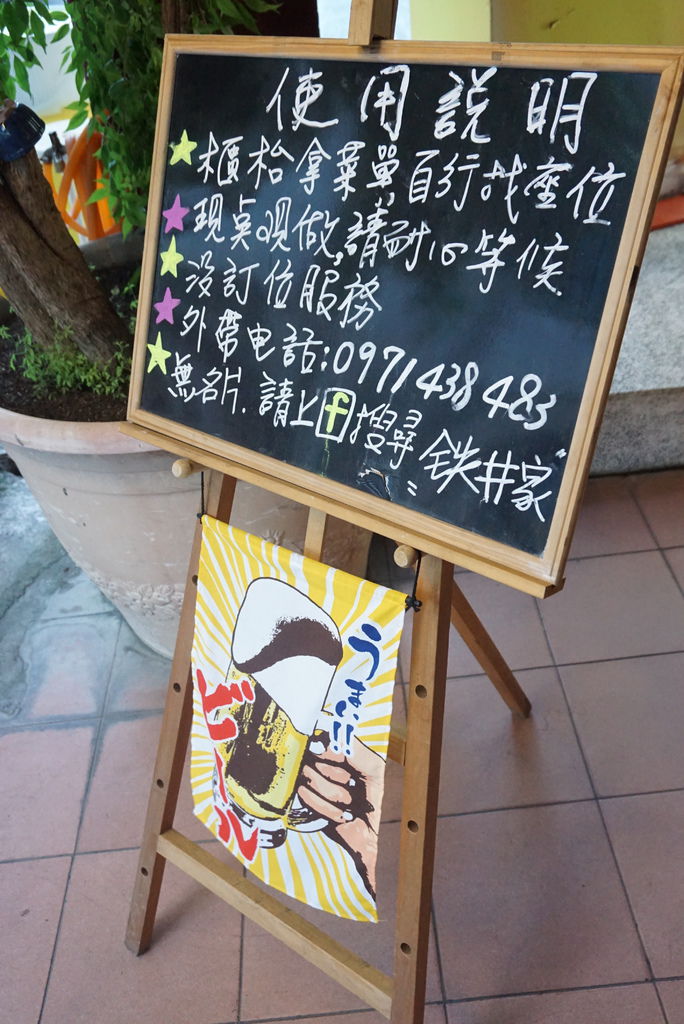 使用説明
櫃枱拿菜單,自行找座位
現点現做,請耐心等候.
没訂位服務
外帶电話:0971438483
無名片.請上f搜尋"鉄井家"
うまい!!
ビール